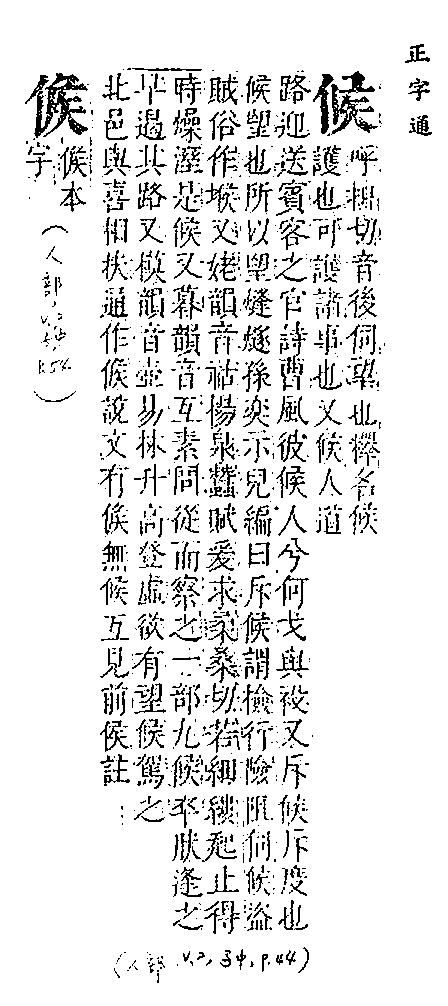 正字通
候
呼搆切音後伺望也釋名候
護也可護諸事也又候人道
路迎送賓客之官詩曹風彼候人兮何戈與祋又斥候斥度也
候望也所以望烽燧孫奕示兒編曰斥候謂檢行險阻伺候盜
賊俗作堠又姥韻音祜楊泉蠶賦爰求柔桑切若細縷起止得
時燥溼是候又暮韻音互素問從而察之一部九候卒然逢之
早遏其路又模韻音壺易林升高登虛欲有望候駕之
北邑與喜相扶通作𠊱說文有𠊱無候互見前侯註
𠊱
候本
字
(人部, v.2, p.54)
(人部 v.2, p.44)